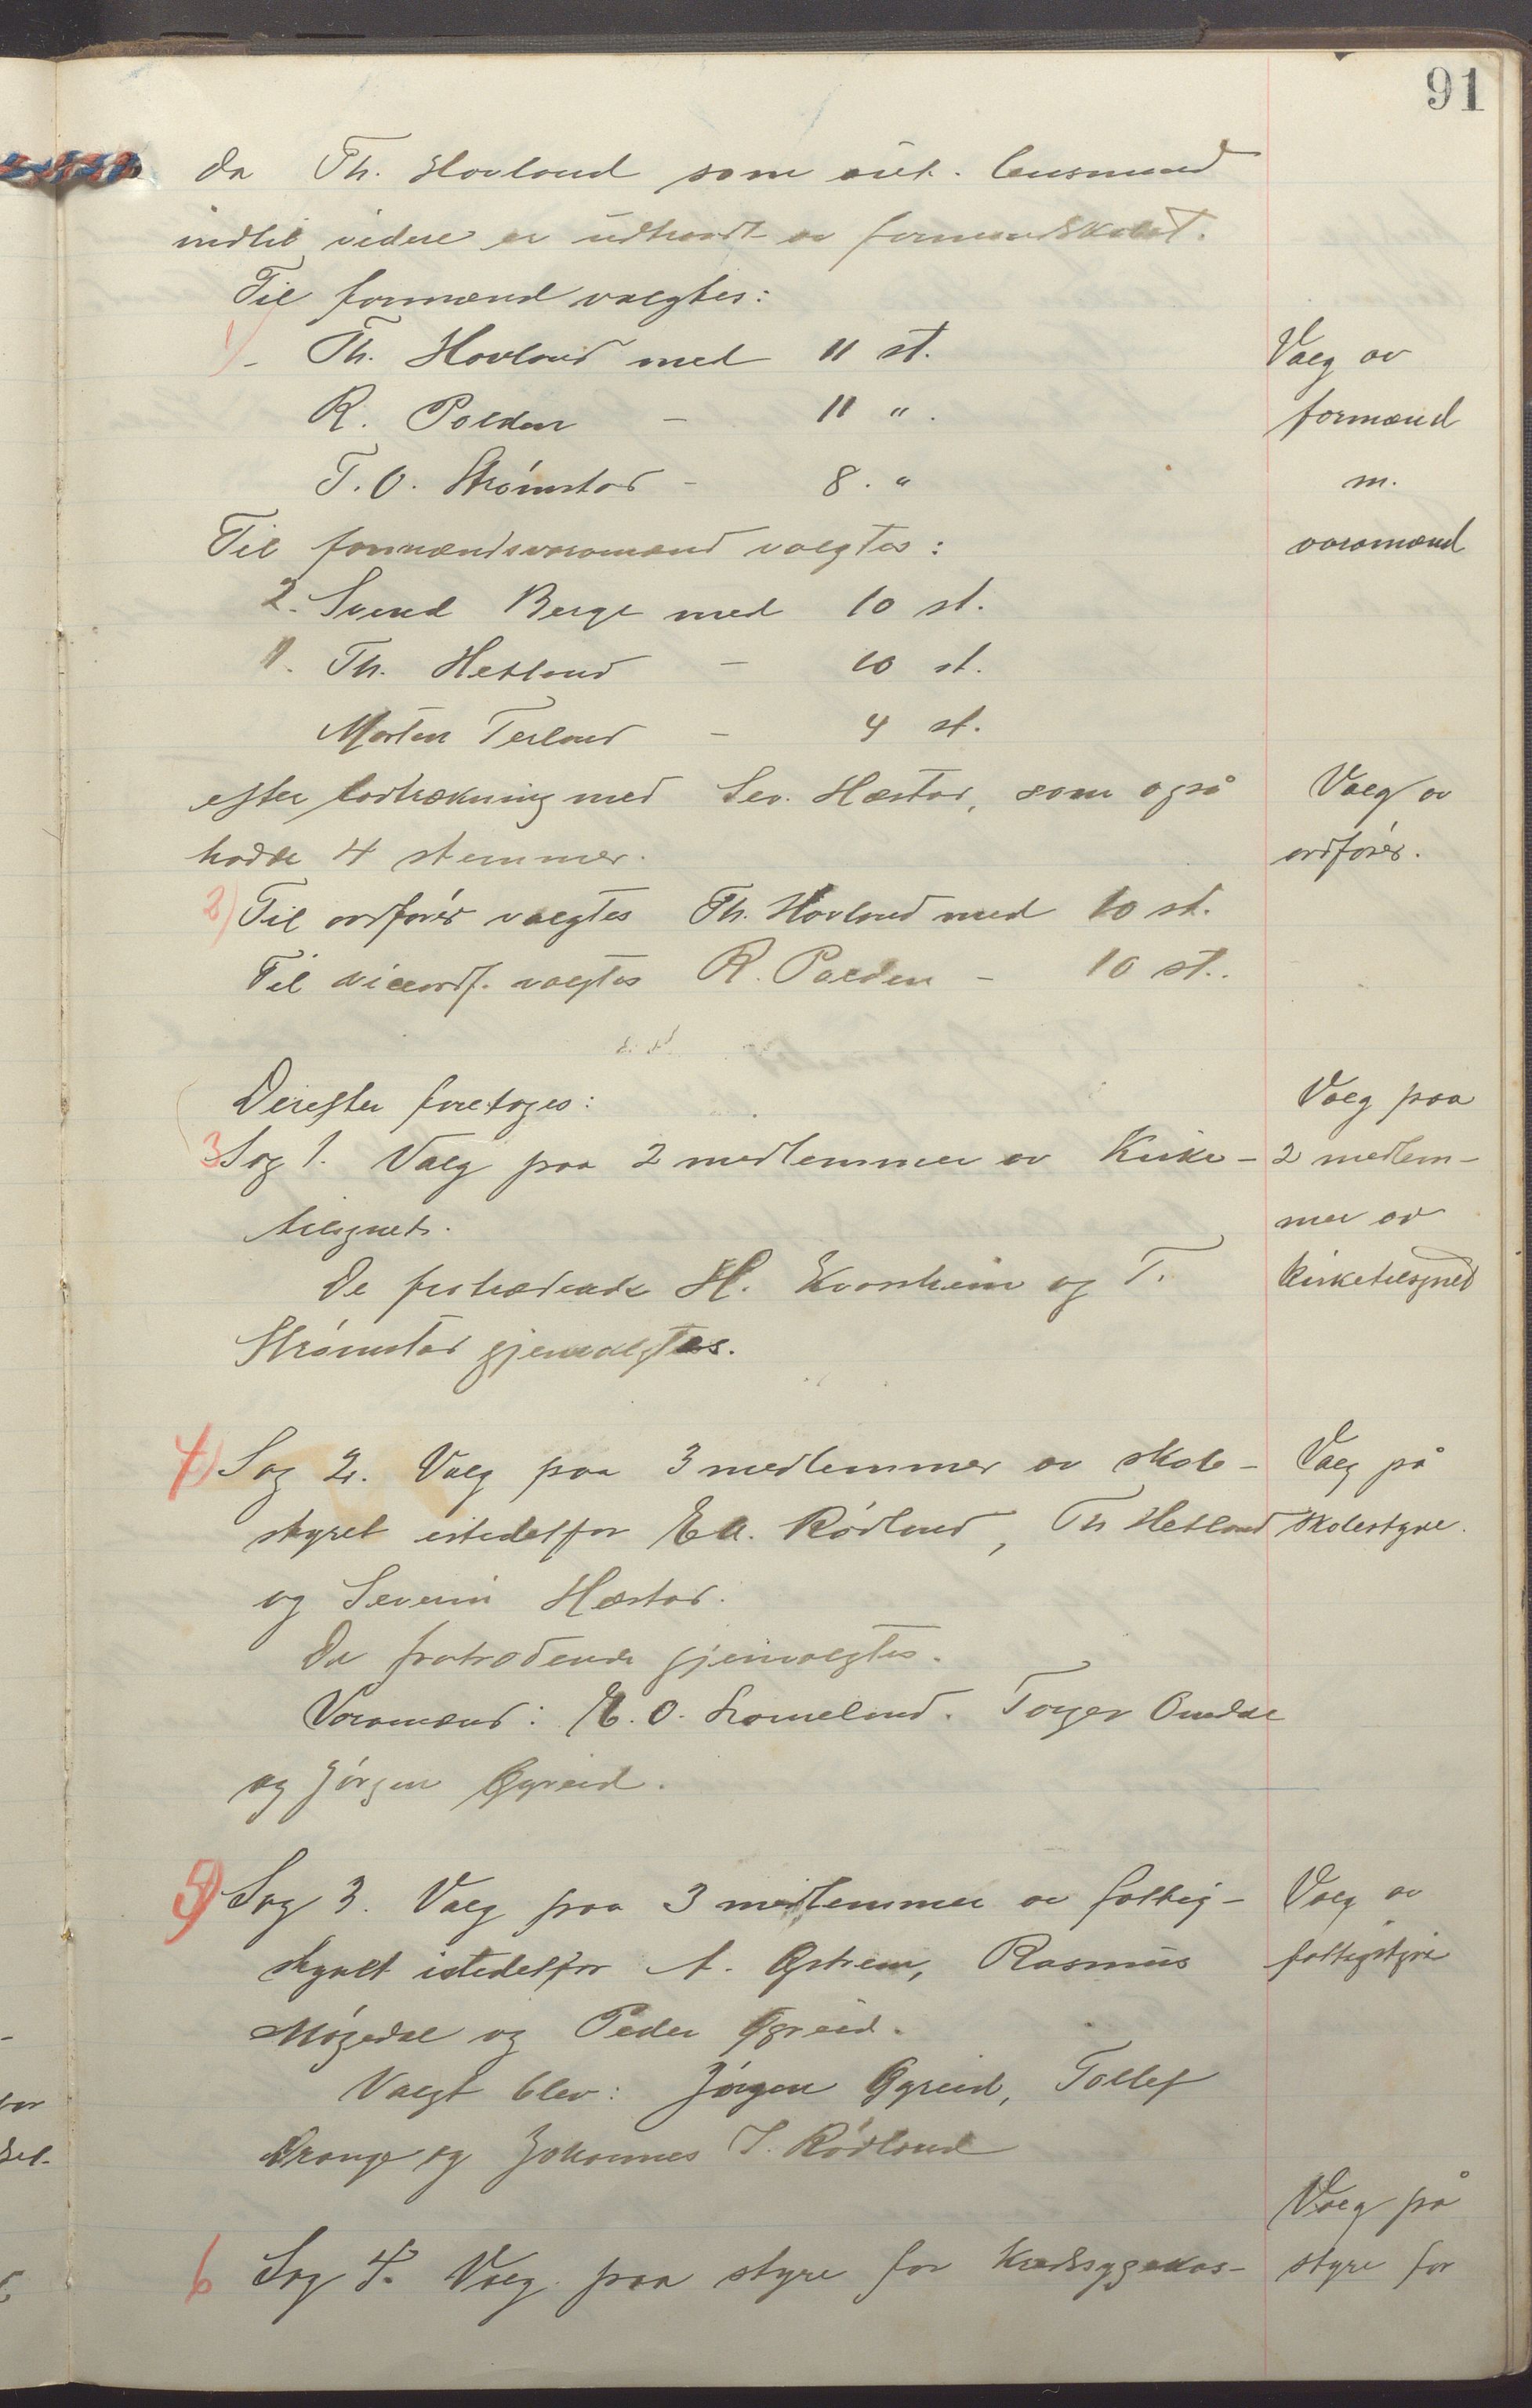 91
da Th. Hovland som  lensmand
indtil videre er udtraadt av formandskabet.
Til formænd valgtes:
1) - Th. Hovland med 11 st.
R. Polden - 11 " .
T. O. Strømstad - 8 . "
Til formændsvaramænd valgtes:
2. Svend Berge med 10 st.
1. Th. Hetland - 10 st.
Morten Terland - 4 st.
efter lodtrækning med Sev. Hæstad, som også
hadde 4 stemmer.
2) Til ordfører valgtes Th. Hovland med 10 st.
Til viceordf. valgtes R. Polden - 10 st..
Derefter foretoges:
3 Sag 1. Valg paa 2 medlemmer av Kirke-
tilsynet.
De fratrædende H. Kvorsheim og T.
Strømstad gjenvalgtes.
4) Sag 2. Valg paa 3 medlemmer av skole-
styret istedetfor El. Rødland, Th Hetland
og Severin Hæstad.
De fratrædende gjenvalgtes.
Varamænd: E. O. Lomeland. Torger Omdal
og Jørgen Øgreid.
5) Sag 3. Valg paa 3 medlemmer av fattig-
styret istedetfor A. Østrem, Rasmus
Møgedal og Peder Øgreid.
Valgt blev: Jørgen Øgreid, Tollef
Drange og Johannes T. Rødland
6 Sag 4. Valg paa styre for Kredssygekas-
Valg av
formænd
m.
varamænd
Valg av
ordfører.
Valg paa
2 medlem-
mer av
kirketilsynet
Valg på
skolestyre.
Valg av
fattigstyre
Valg på
styre for